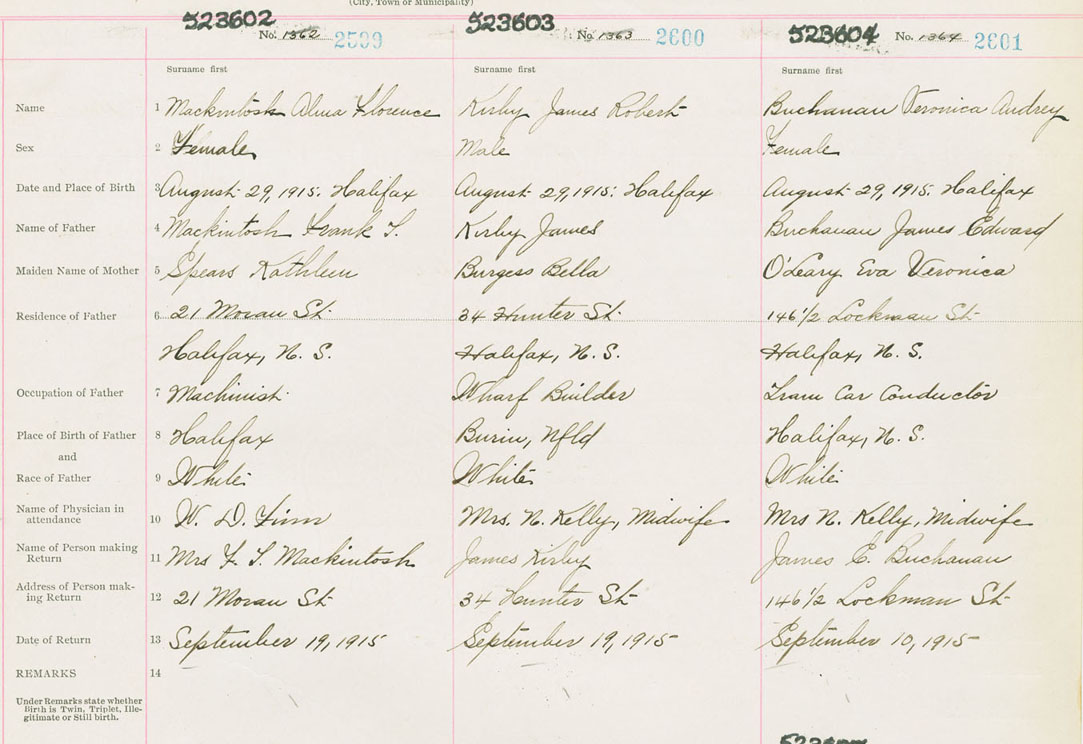 (City, Town or Municipality)
523602 No. 1362 2599 523603 No. 1363 2600 523604 No. 1364 2601
Surname first Surname first Surname first
Name 1 Mackintosh Alma Florence Kirby James Robert Buchanan Veronica Audrey
Sex 2 Female Male Female
Date and Place of Birth 3 August 29, 1915. Halifax August 29, 1915. Halifax August 29, 1915. Halifax
Name of Father 4 Mackintosh Frank S. Kirby James Buchanan James Edward
Maiden Name of Mother 5 Spears Kathleen Burgess Bella O'Leary Eva Veronica
Residence of Father 6 21 Moran St. 34 Hunter St. 146 1/2 Lockman St
Halifax, N. S. Halifax, N. S. Halifax, N. S.
Occupation of Father 7 Machinist Wharf Builder Tram Car Conductor
Place of Birth of Father 8 Halifax Burin, Nfld Halifax, N. S.
and
Race of Father 9 White White White
Name of Physician in
attendance 10 W. D. Finn Mrs. N. Kelly, Midwife Mrs N. Kelly, Midwife
Name of Person making
Return 11 Mrs F. S. Mackintosh James Kirby James E. Buchanan
Address of Person mak-
ing Return 12 21 Moran St 34 Hunter St 146 1/2 Lockman St
Date of Return 13 September 19, 1915 September 19, 1915 September 10, 1915
REMARKS 14
Under Remarks state whether
Birth is Twin, Triplet, Ille-
gitimate or Still birth.